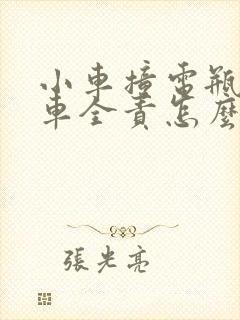 小車撞電瓶
車全責怎麼
張光亮